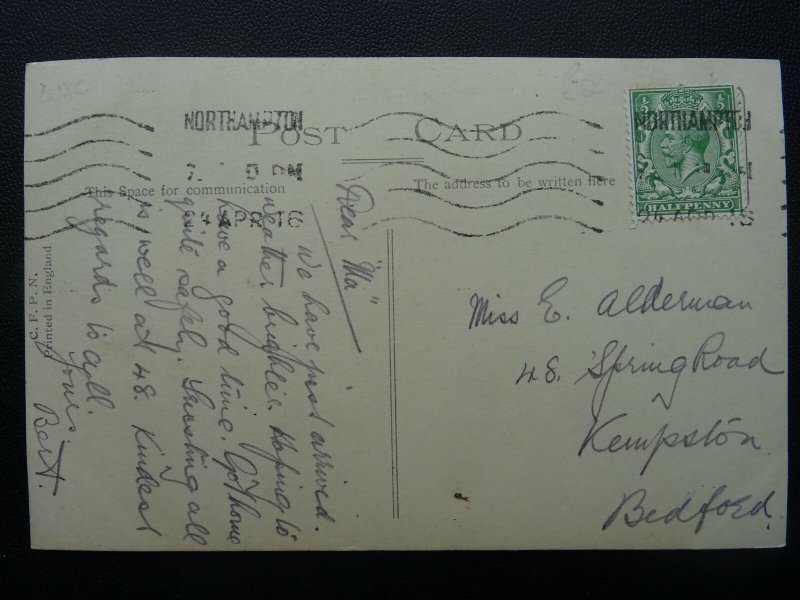 NORTHAMPTON
POST CARD
NORTHAMPTON
APR 16
APR 16
½ ½
HALFPENNY
This Space for communication
The address to be written here
Dear "Ma"
We have just arrived.
weather brighter. Hoping to
have a good time. Got home
quite safely. Trusting all
is well at 48. Kindest
regards to all.
Yours
Bert.
Miss E. Alderman
48. Spring Road
Kempston
Bedford.
C. F. P. N.
Printed in England